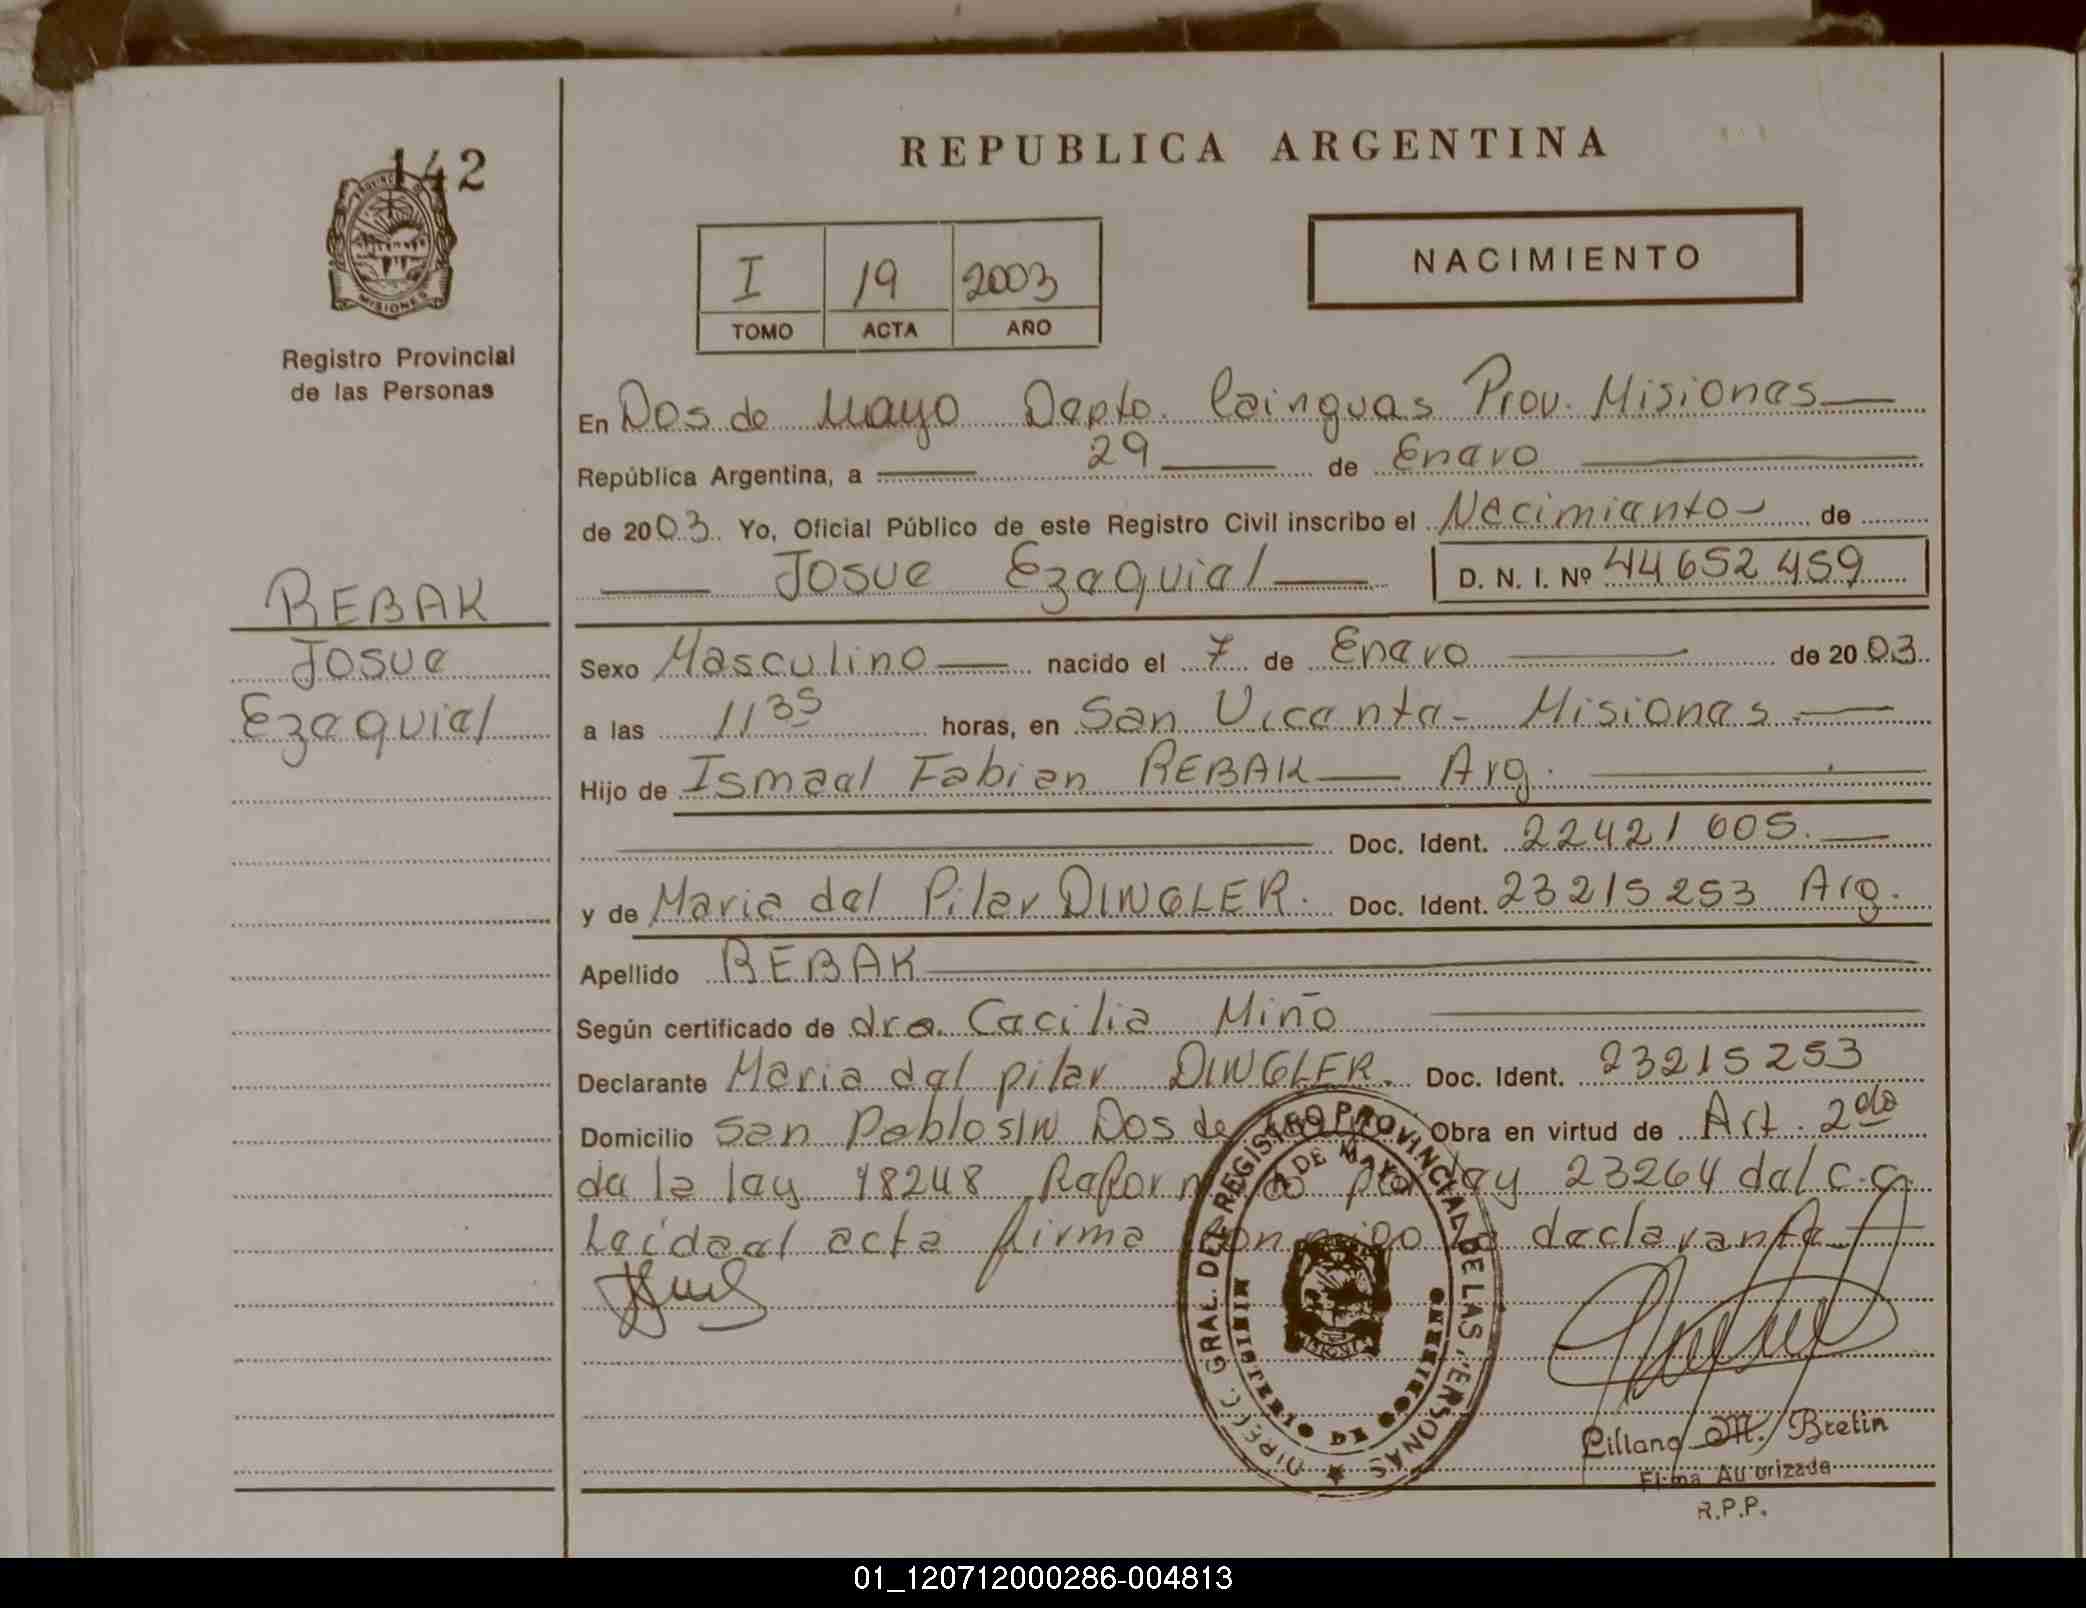 142
PROVINCIA DE
MISIONES
Registro Provincial
de las Personas
REBAK
Josue
Ezequiel
REPUBLICA ARGENTINA
I 19 2003
TOMO ACTA AÑO
NACIMIENTO
En Dos de Mayo Depto. Cainguas Prov. Misiones
República Argentina, a 29 de Enero
de 2003. Yo, Oficial Público de este Registro Civil inscribo el Nacimiento de
Josue Ezequiel D. N. I. Nº 44652459
Sexo Masculino nacido el 7 de Enero de 2003.
a las 11 35 horas, en San Vicente - Misiones
Hijo de Ismael Fabian REBAK Arg.
Doc. Ident. 22421605.
y de Maria del Pilar DINGLER. Doc. Ident. 23215253 Arg.
Apellido REBAK
Según certificado de dra. Cecilia Miño
Declarante Maria del pilar DINGLER. Doc. Ident. 23215253
Domicilio San Pablo S/N Dos de Obra en virtud de Art. 2do
de la ley 18248 Reformado por ley 23264 del C.C.
Leida el acta firma conmigo la declarante
DIRECC. GRAL. DEL REGISTRO PROVINCIAL DE LAS PERSONAS
2 DE MAYO
MINISTERIO DE GOBIERNO
MISIONES
M. Bretin
Firma Autorizada
R.P.P.
01_120712000286-004813